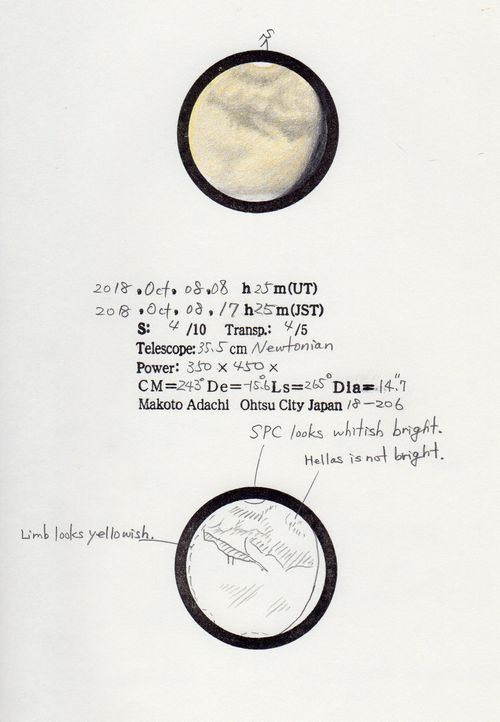 S
2018, Oct, 08, 08 h 25 m(UT)
2018, Oct, 08, 17 h 25 m(JST)
S: 4 /10 Transp.: 4/5
Telescope: 35.5 cm Newtonian
Power: 350 × 450 ×
CM=243° De=-15.6° Ls=265° Dia=14."7
Makoto Adachi Ohtsu City Japan 18-206
SPC looks whitish bright.
Hellas is not bright.
Limb looks yellowish.